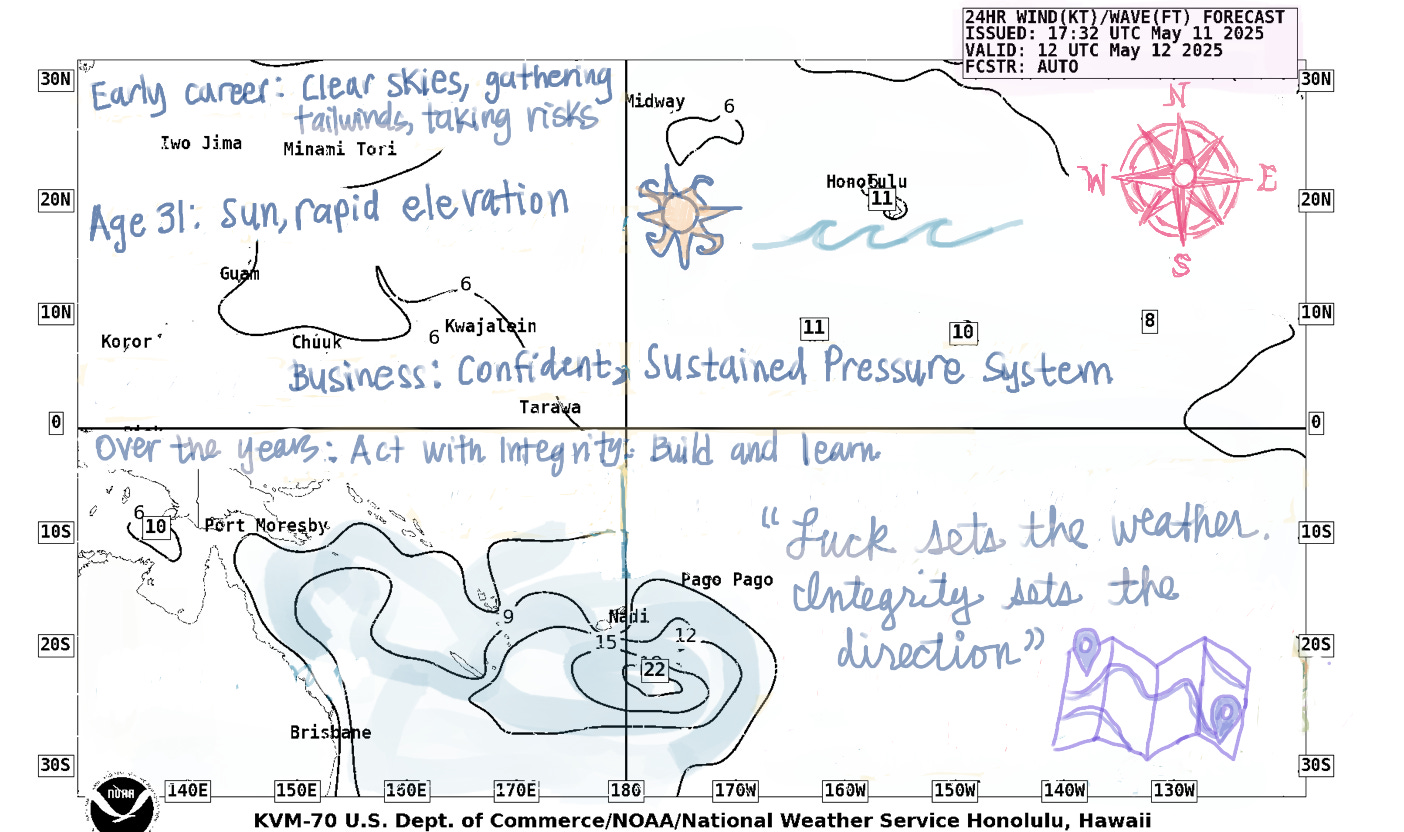 24HR WIND(KT)/WAVE(FT) FORECAST
ISSUED: 17:32 UTC May 11 2025
VALID: 12 UTC May 12 2025
FCSTR: AUTO
30N
30N
Early career: Clear skies, gathering
tailwinds, taking risks
Midway
6
N
Iwo Jima
Minami Tori
W
E
Honolulu
11
20N
20N
Age 31: Sun, rapid elevation
S
Guam
6
10N
10N
Koror
Chuuk
6
Kwajalein
11
10
8
Business: Confident, Sustained Pressure System
Tarawa
0
0
Over the years: Act with Integrity. Build and learn.
6
10
Port Moresby
10S
10S
"Luck sets the weather.
Integrity sets the
direction"
Pago Pago
9
Nadi
15
12
20S
20S
22
Brisbane
30S
30S
NOAA
140E
150E
160E
170E
180
170W
160W
150W
140W
130W
KVM-70 U.S. Dept. of Commerce/NOAA/National Weather Service Honolulu, Hawaii